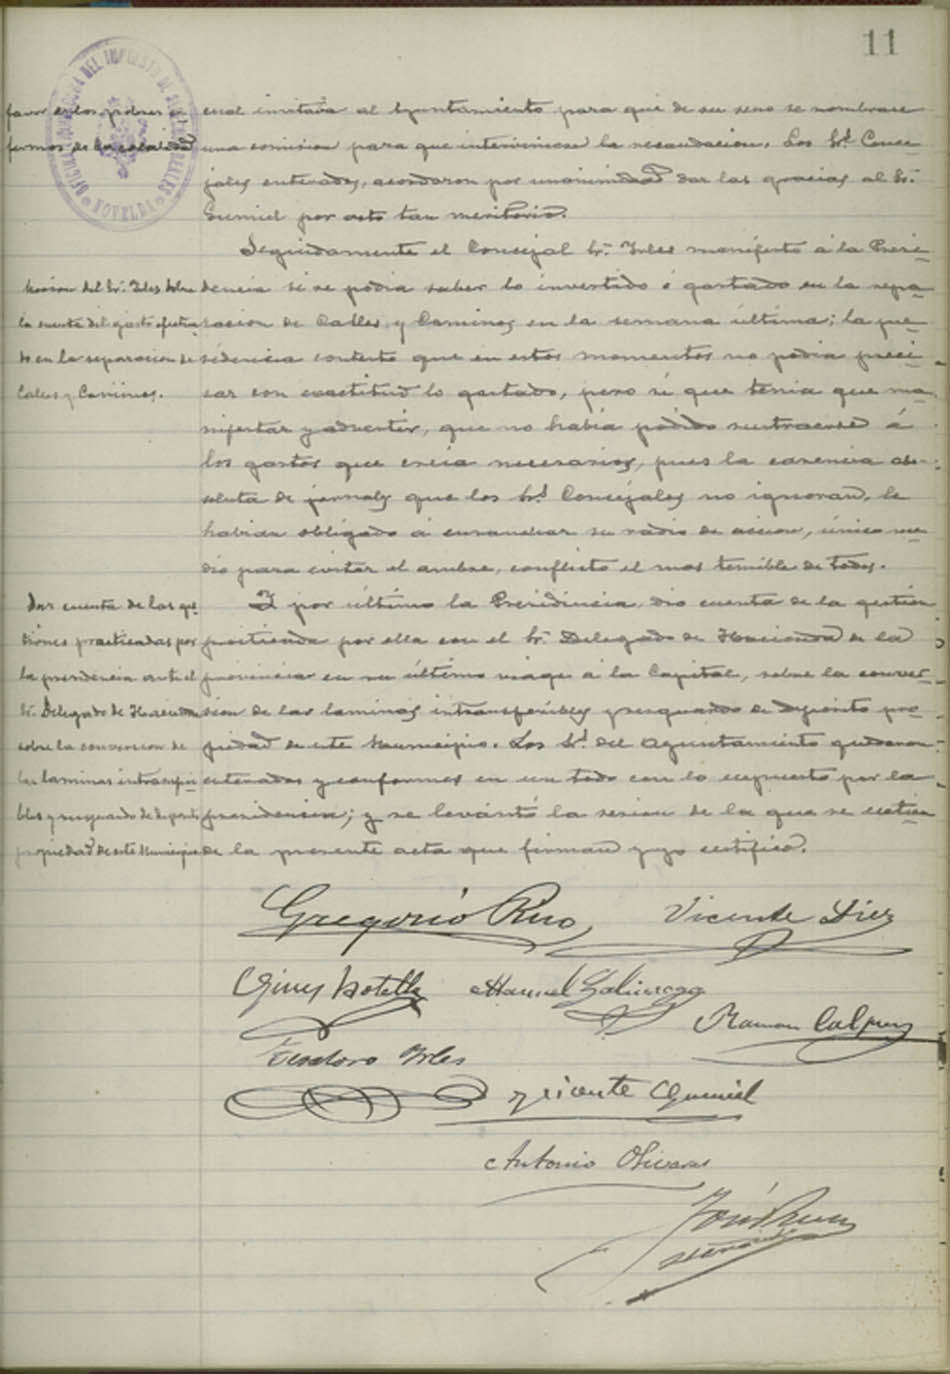 11
favor de los pobres en
fermos de la localidad
cual invitaba al Ayuntamiento para que de su seno se nombrase
una comision para que interviniese la recaudacion. Los Srs. Conce-
jales enterados, acordaron por unanimidad dar las gracias al Sr.
Gumiel por acto tan meritorio.
Mocion del Sr. Irles sobre
la cuenta del gasto efectua
do en la reparacion de
Calles y Caminos.
Seguidamente el Concejal Sr. Irles manifestó á la Presi-
dencia si se podia saber lo invertido ó gastado en la repa-
racion de Calles y Caminos en la semana última; la pre-
sidencia contestó que en estos momentos no podia preci-
sar con exactitud lo gastado, pero si que tenia que ma-
nifestar y advertir, que no habia podido sustraerse á
los gastos que creia necesarios, pues la carencia ab-
soluta de jornales que los Srs. Concejales no ignoran, le
habian obligado á ensanchar su radio de accion, único me-
dio para evitar el conflicto el mas temible de todos.
Dar cuenta de las ges
tiones practicadas por
la presidencia ante el
Sr. Delegado de Hacienda
sobre la conversion de
las laminas intransferi-
bles y resguardo de deposito
propiedad de este Municipio
Y por último la Presidencia dio cuenta de la gestión
por ella con el Sr. Delegado de Hacienda de la
provincia en su último viage á la Capital, sobre la conver-
sion de las laminas intransferibles y resguardo de deposito pro-
piedad de este Municipio. Los Srs. del Ayuntamiento quedaron
enterados y conformes en un todo con lo expuesto por la
presidencia; y se levantó la sesion de la que se extien
de la presente acta que firman y yo certifico.
Gregorio Ruo Vicente Diez
Gines Botella Manuel Galiana
Ramon Calpena
Teodoro Irles
Vicente Gumiel
Antonio Olivares
José
Secretario